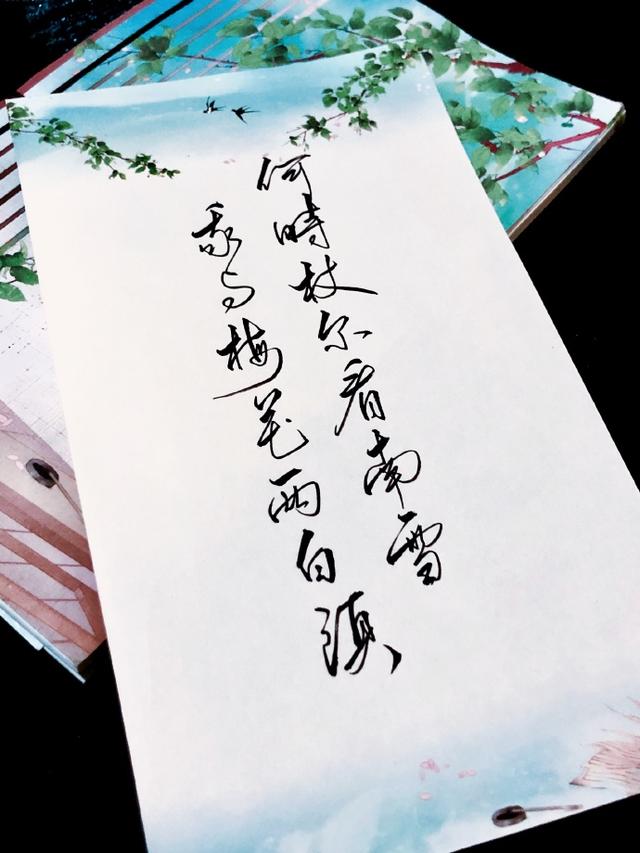 何時杖尔看南雪
我与梅花两白頭